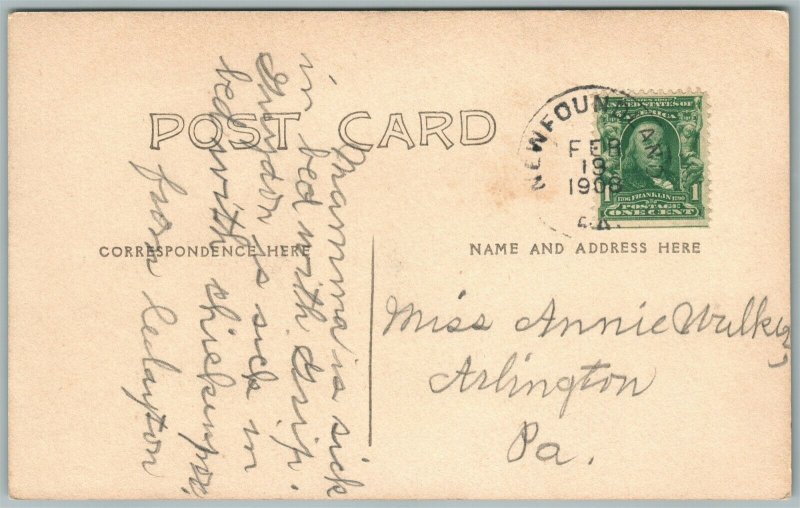 POST CARD
CORRESPONDENCE HERE
Mamma is sick
in bed with Grip.
is sick in
bed with chickenpox.
from Clayton
NEWFOUNDLAND
FEB
19
1908
UNITED STATES OF
AMERICA
1 FRANKLIN 1
POSTAGE
ONE CENT
NAME AND ADDRESS HERE
Miss Annie Walker,
Arlington
Pa.